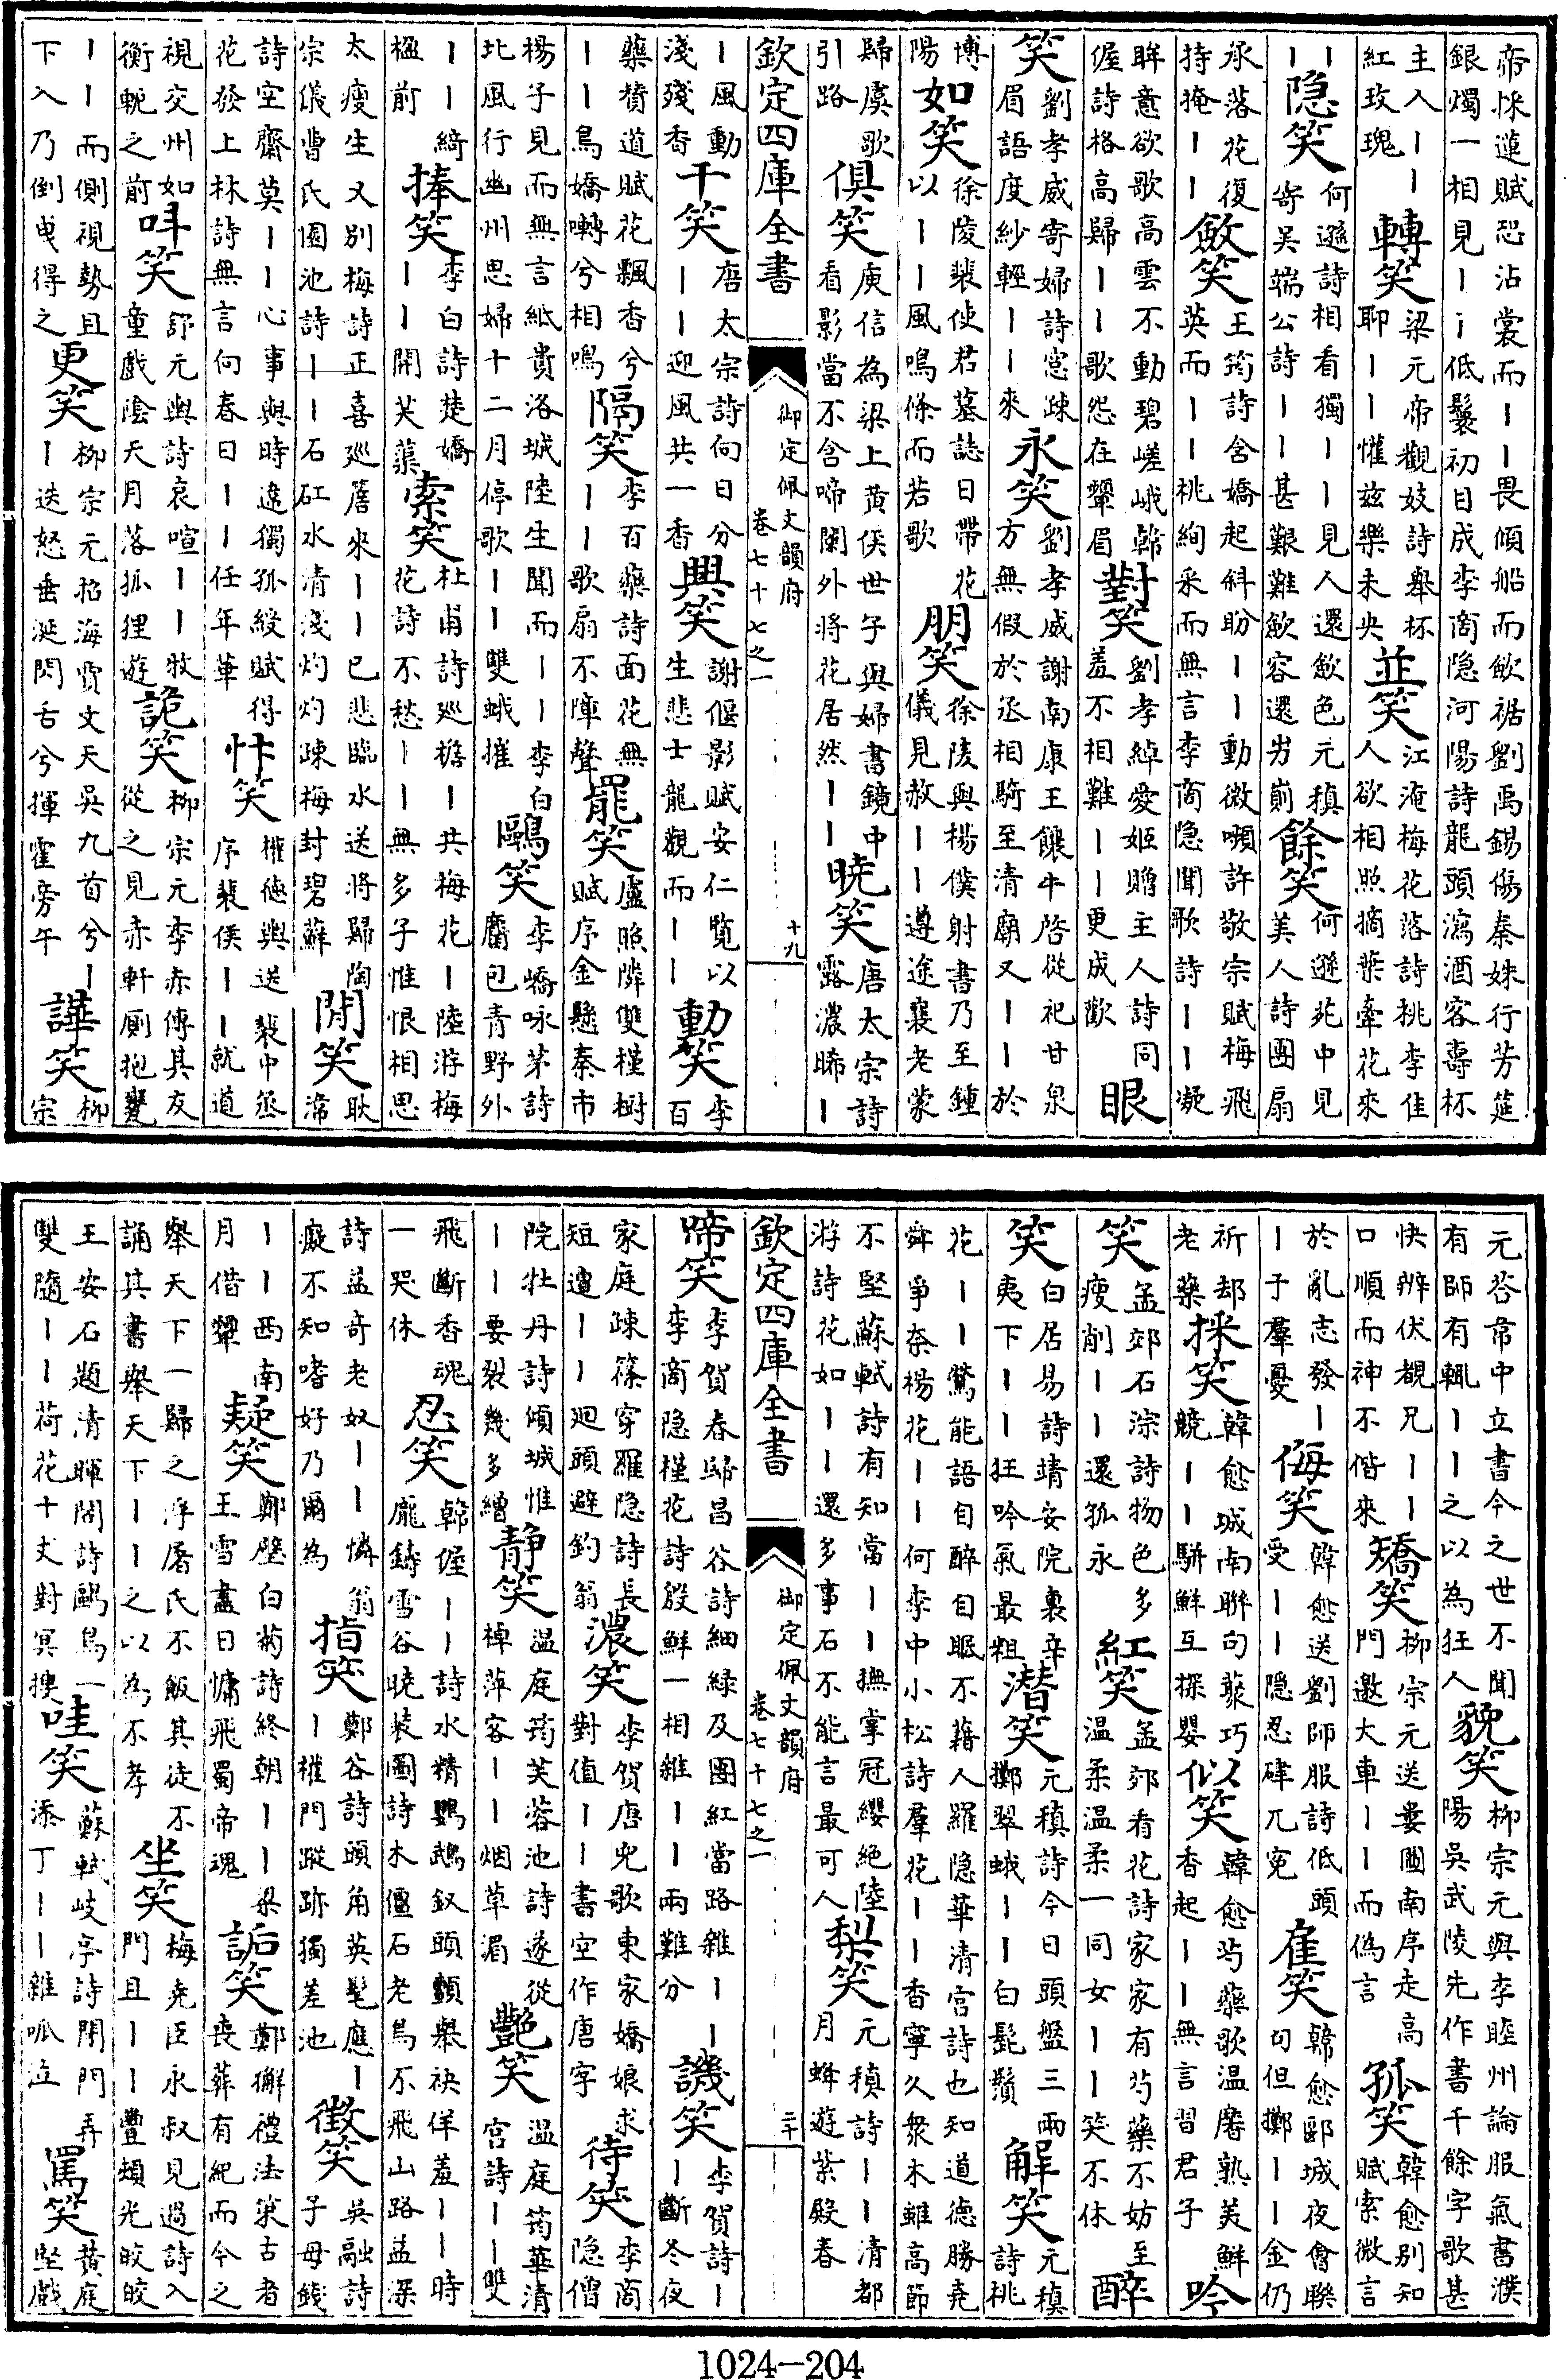 帝採蓮賦恐沾裳而丨丨畏傾船而歛裾劉禹錫傷秦姝行芳筵銀燭一相見丨丨低鬟初目成李商隐河陽詩龍頭瀉酒客壽杯
主人丨丨紅玫瑰轉笑梁元帝觀妓詩舉杯聊丨丨懽兹樂未央並笑江淹梅花落詩桃李佳人欲相照摘葉牽花來
丨丨隐笑何遜詩相看獨丨丨見人還歛色元稹寄吳端公詩丨丨甚艱難歛容還屴崱餘笑何遜苑中見美人詩團扇
承落花復持掩丨丨斂笑王筠詩含嬌起斜盼丨丨動微嚬許敬宗賦梅飛英而丨丨桃絢采而無言李商隐聞歌詩丨丨凝
眸意欲歌高雲不動碧嵯峨韓偓詩格高歸丨丨歌怨在顰眉對笑劉孝綽愛姬贈主人詩同羞不相難丨丨更成歡眼
笑劉孝威寄婦詩窓疎眉語度紗輕丨丨來永笑劉孝威謝南康王饟牛啓從祀甘泉方無假於丞相騎至清廟又丨丨於
博陽如笑徐陵裴使君墓誌日帶花以丨丨風鳴條而若歌朋笑徐陵與楊僕射書乃至鍾儀見赦丨丨遵途襄老蒙
歸虞歌引路俱笑庾信為梁上黄侯世子與婦書鏡中看影當不含啼闌外將花居然丨丨暁笑唐太宗詩露濃晞丨
欽定四庫全書 御定佩文韻府 卷七十七之一 十九
丨風動淺殘香千笑唐太宗詩向日分丨丨迎風共一香興笑謝偃影賦安仁覧以生悲士龍觀而丨丨動笑李百
藥賛道賦花飄香兮丨丨鳥嬌囀兮相鳴隔笑李百藥詩面花無丨丨歌扇不陣聲罷笑盧照隣雙槿樹賦序金懸秦市
楊子見而無言紙貴洛城陸生聞而丨丨李白北風行幽州思婦十二月停歌丨丨雙蛾摧鷗笑李嶠咏茅詩麏包青野外
丨丨綺楹前捧笑李白詩楚嬌丨丨開芙蕖索笑杜甫詩廵檐丨共梅花丨陸游梅花詩不愁丨丨無多子惟恨相思
太瘦生又别梅詩正喜廵簷來丨丨已悲臨水送將歸陶宗儀曹氏園池詩丨丨石矼水清淺灼灼疎梅封碧蘚閒笑耿湋
詩空齋莫丨丨心事與時違獨孤綬賦得花發上林詩無言向春日丨丨任年華忭笑權德輿送裴中丞序裴侯丨丨就道
視交州如衡軛之前笑舒元輿詩哀喧丨丨牧童戯陰天月落孤狸遊詭笑柳宗元李赤傳其友從之見赤軒厠抱甕
丨丨而側視勢且下入乃倒曳得之更笑柳宗元招海賈文天吳九首兮丨丨迭怒垂涎閃舌兮揮霍旁午譁笑柳宗
元荅韋中立書今之世不聞有師有輒丨丨之以為狂人貌笑柳宗元與李睦州論服氣書濮陽吳武陵先作書千餘字歌甚
快辨伏覩兄丨丨口順而神不偕來矯笑柳宗元送婁圖南序走高門邀大車丨丨而偽言孤笑韓愈别知賦索微言
於亂志發丨丨于羣憂侮笑韓愈送劉師服詩低頭受丨丨隐忍硉兀寃雇笑韓愈郾城夜會聯句但擲丨丨金仍
祈却老藥採笑韓愈城南聯句蘂巧競丨丨駢鮮互探嬰似笑韓愈芍藥歌温麐熟美鮮香起丨丨無言習君子吟
笑孟郊石淙詩物色多瘦削丨丨還孤永紅笑孟郊看花詩家家有芍藥不妨至温柔温柔一同女丨丨笑不休醉
笑白居易詩靖安院裏辛夷下丨丨狂吟氣最粗潜笑元稹詩今日頭盤三兩擲翠蛾丨丨白髭鬚解笑元稹詩桃
花丨丨鶯能語自醉自眠不藉人羅隐華清宫詩也知道德勝堯舜爭奈楊花丨丨何李中小松詩羣花丨丨香寧久衆木雖高節
不堅蘇軾詩有知當丨丨撫掌冠纓絶陸游詩花如丨丨還多事石不能言最可人梨笑元稹詩丨丨清都月蜂遊紫殿春
欽定四庫全書 御定佩文韻府 卷七十七之一 二十
啼笑李賀春歸昌谷詩細緑及團紅當路雜丨丨李商隐槿花詩殷鮮一相雜丨丨兩難分譏笑李賀詩丨丨斷冬夜
家庭疎篠穿羅隐詩長短遭丨丨廻頭避釣翁濃笑李賀唐兒歌東家嬌娘求對值丨丨書空作唐字待笑李商隐僧
院牡丹詩傾城惟丨丨要裂幾多繒静笑温庭筠芙蓉池詩遂從棹萍客丨丨烟草湄艷笑温庭筠華清宫詩丨丨雙
飛斷香魂一哭休忍笑韓偓丨丨詩水精鸚鵡釵頭顫舉袂佯羞丨丨時龐鑄雪谷曉装圖詩木僵石老鳥不飛山路益深
詩益奇老奴丨丨憐翁癡不知嗜好乃爾為指笑鄭谷詩頭角英髦應丨丨權門蹤跡獨差池徴笑吳融詩子母錢
丨丨西南月借顰疑笑鄭壁白菊詩終朝丨丨梁王雪盡日慵飛蜀帝魂詬笑鄭獬禮法策古者喪葬有紀而今之
舉天下一歸之浮屠氏不飯其徒不誦其書舉天下丨丨之以為不孝坐笑梅尭臣永叔見過詩入門且丨丨豐頰光皎皎
王安石題清暉閣詩鷗鳥一雙隨丨丨荷花十丈對冥搜哇笑蘇軾岐亭詩閉門弄添丁丨丨雜呱泣罵笑黄庭堅戯
1024-204